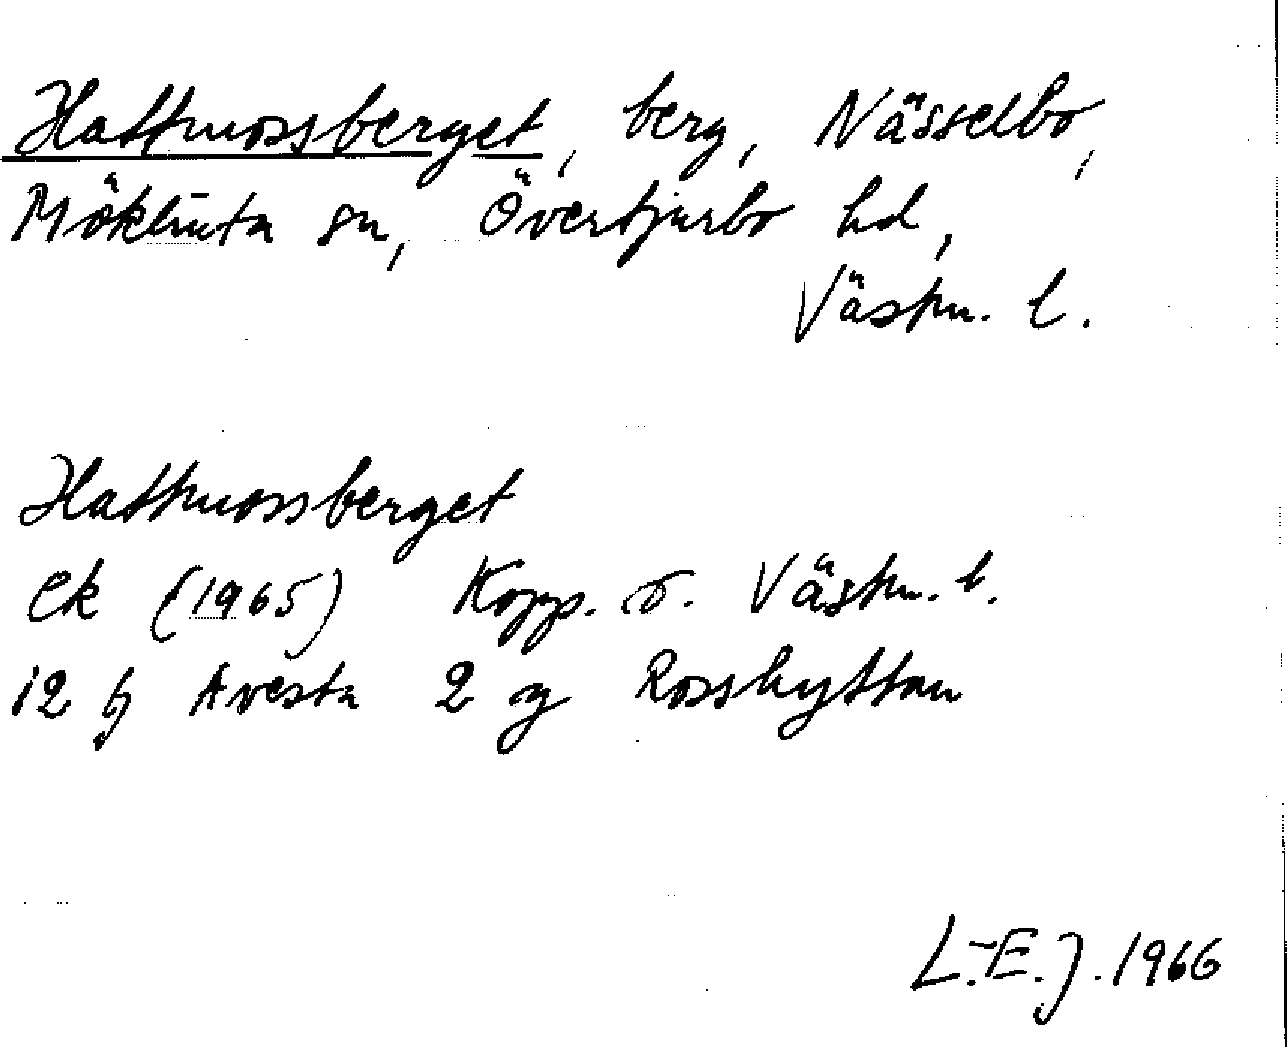 Hattmossberget, berg, Nässelbo,
Möklinta sn, Övertjurbo hd,
Västm. l.
Hattmossberget
ek (1965) Kopp. o. Västm. l.
12 G Avesta 2 g Rosshyttan
L.-E. J. 1966